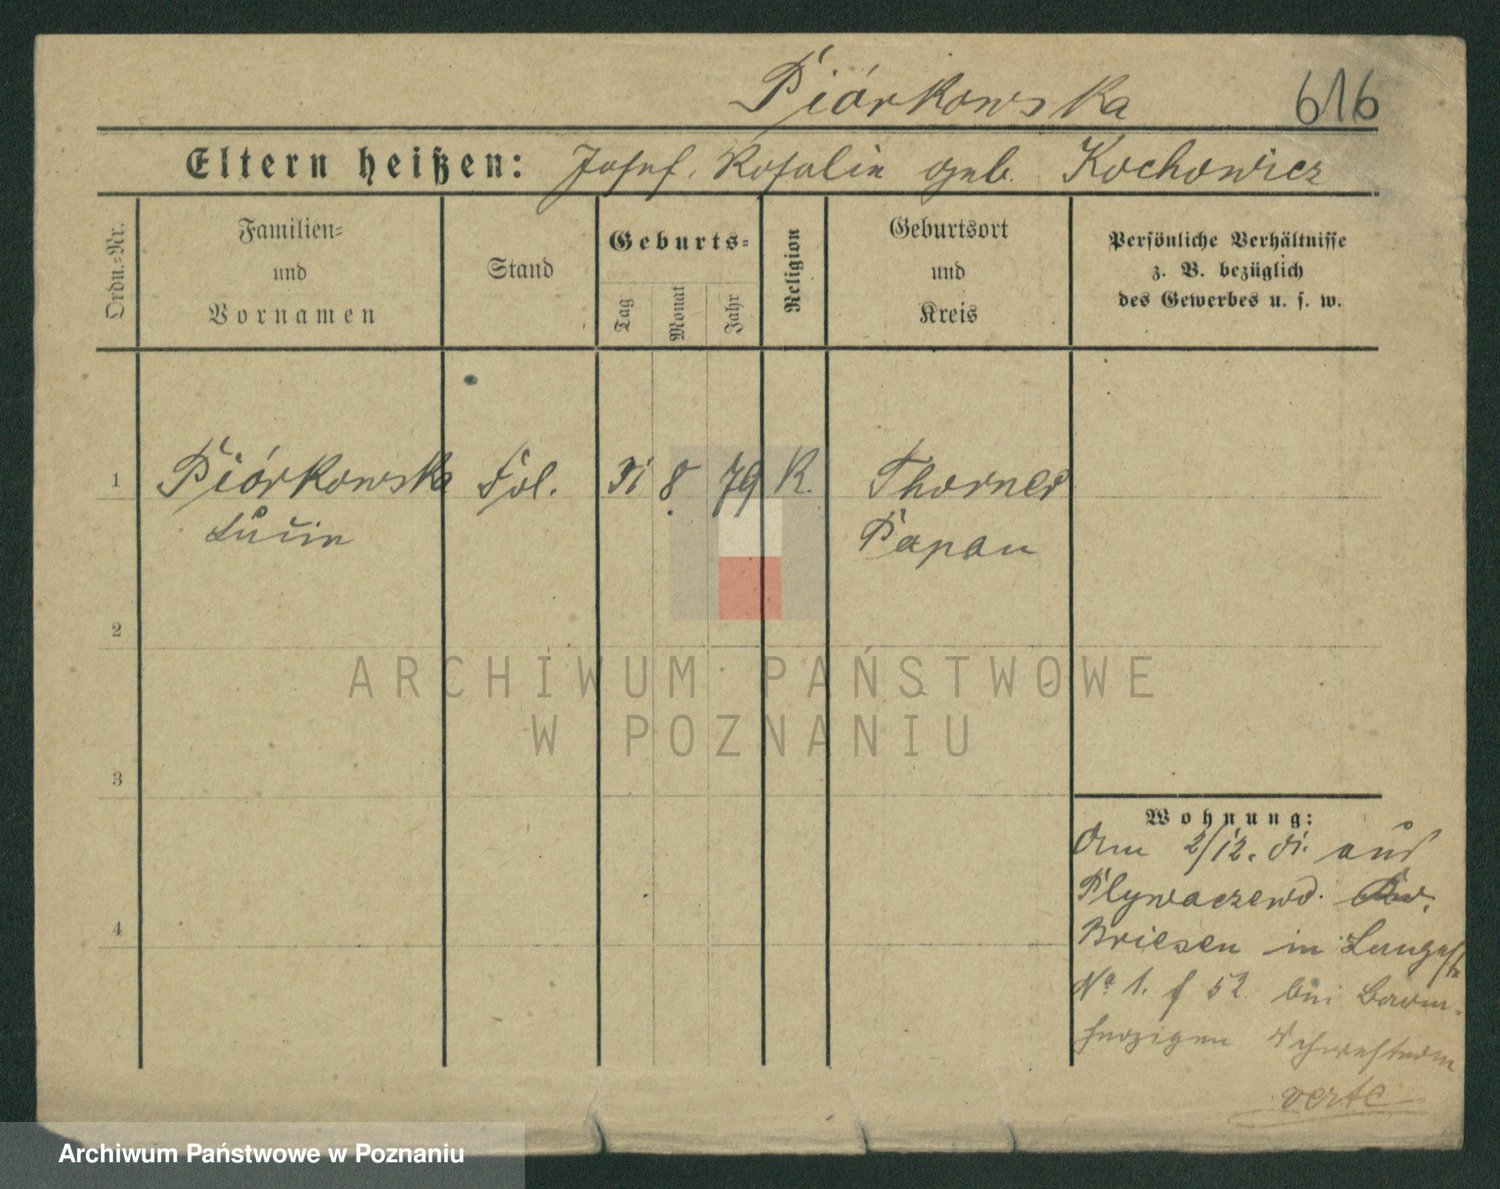 Piórkowska 616
Eltern heißen: Josef, Rosalie geb. Kochowicz
Ordn.-Nr.
Familien-
und
Vornamen
Stand
Geburts-
Tag
Monat
Jahr
Religion
Geburtsort
und
Kreis
Persönliche Verhältnisse
z. B. bezüglich
des Gewerbes u. s. w.
1 Piórkowska 8. 79 R. Thorner
Lucie Papau
2
ARCHIWUM PAŃSTWOWE
W POZNANIU
3
Wohnung:
Am 2/12. aus
Plywaczewo.
Briesen in Langestr
No 1. 52 bei Barm-
herzigen Schwestern
verte
4
Archiwum Państwowe w Poznaniu